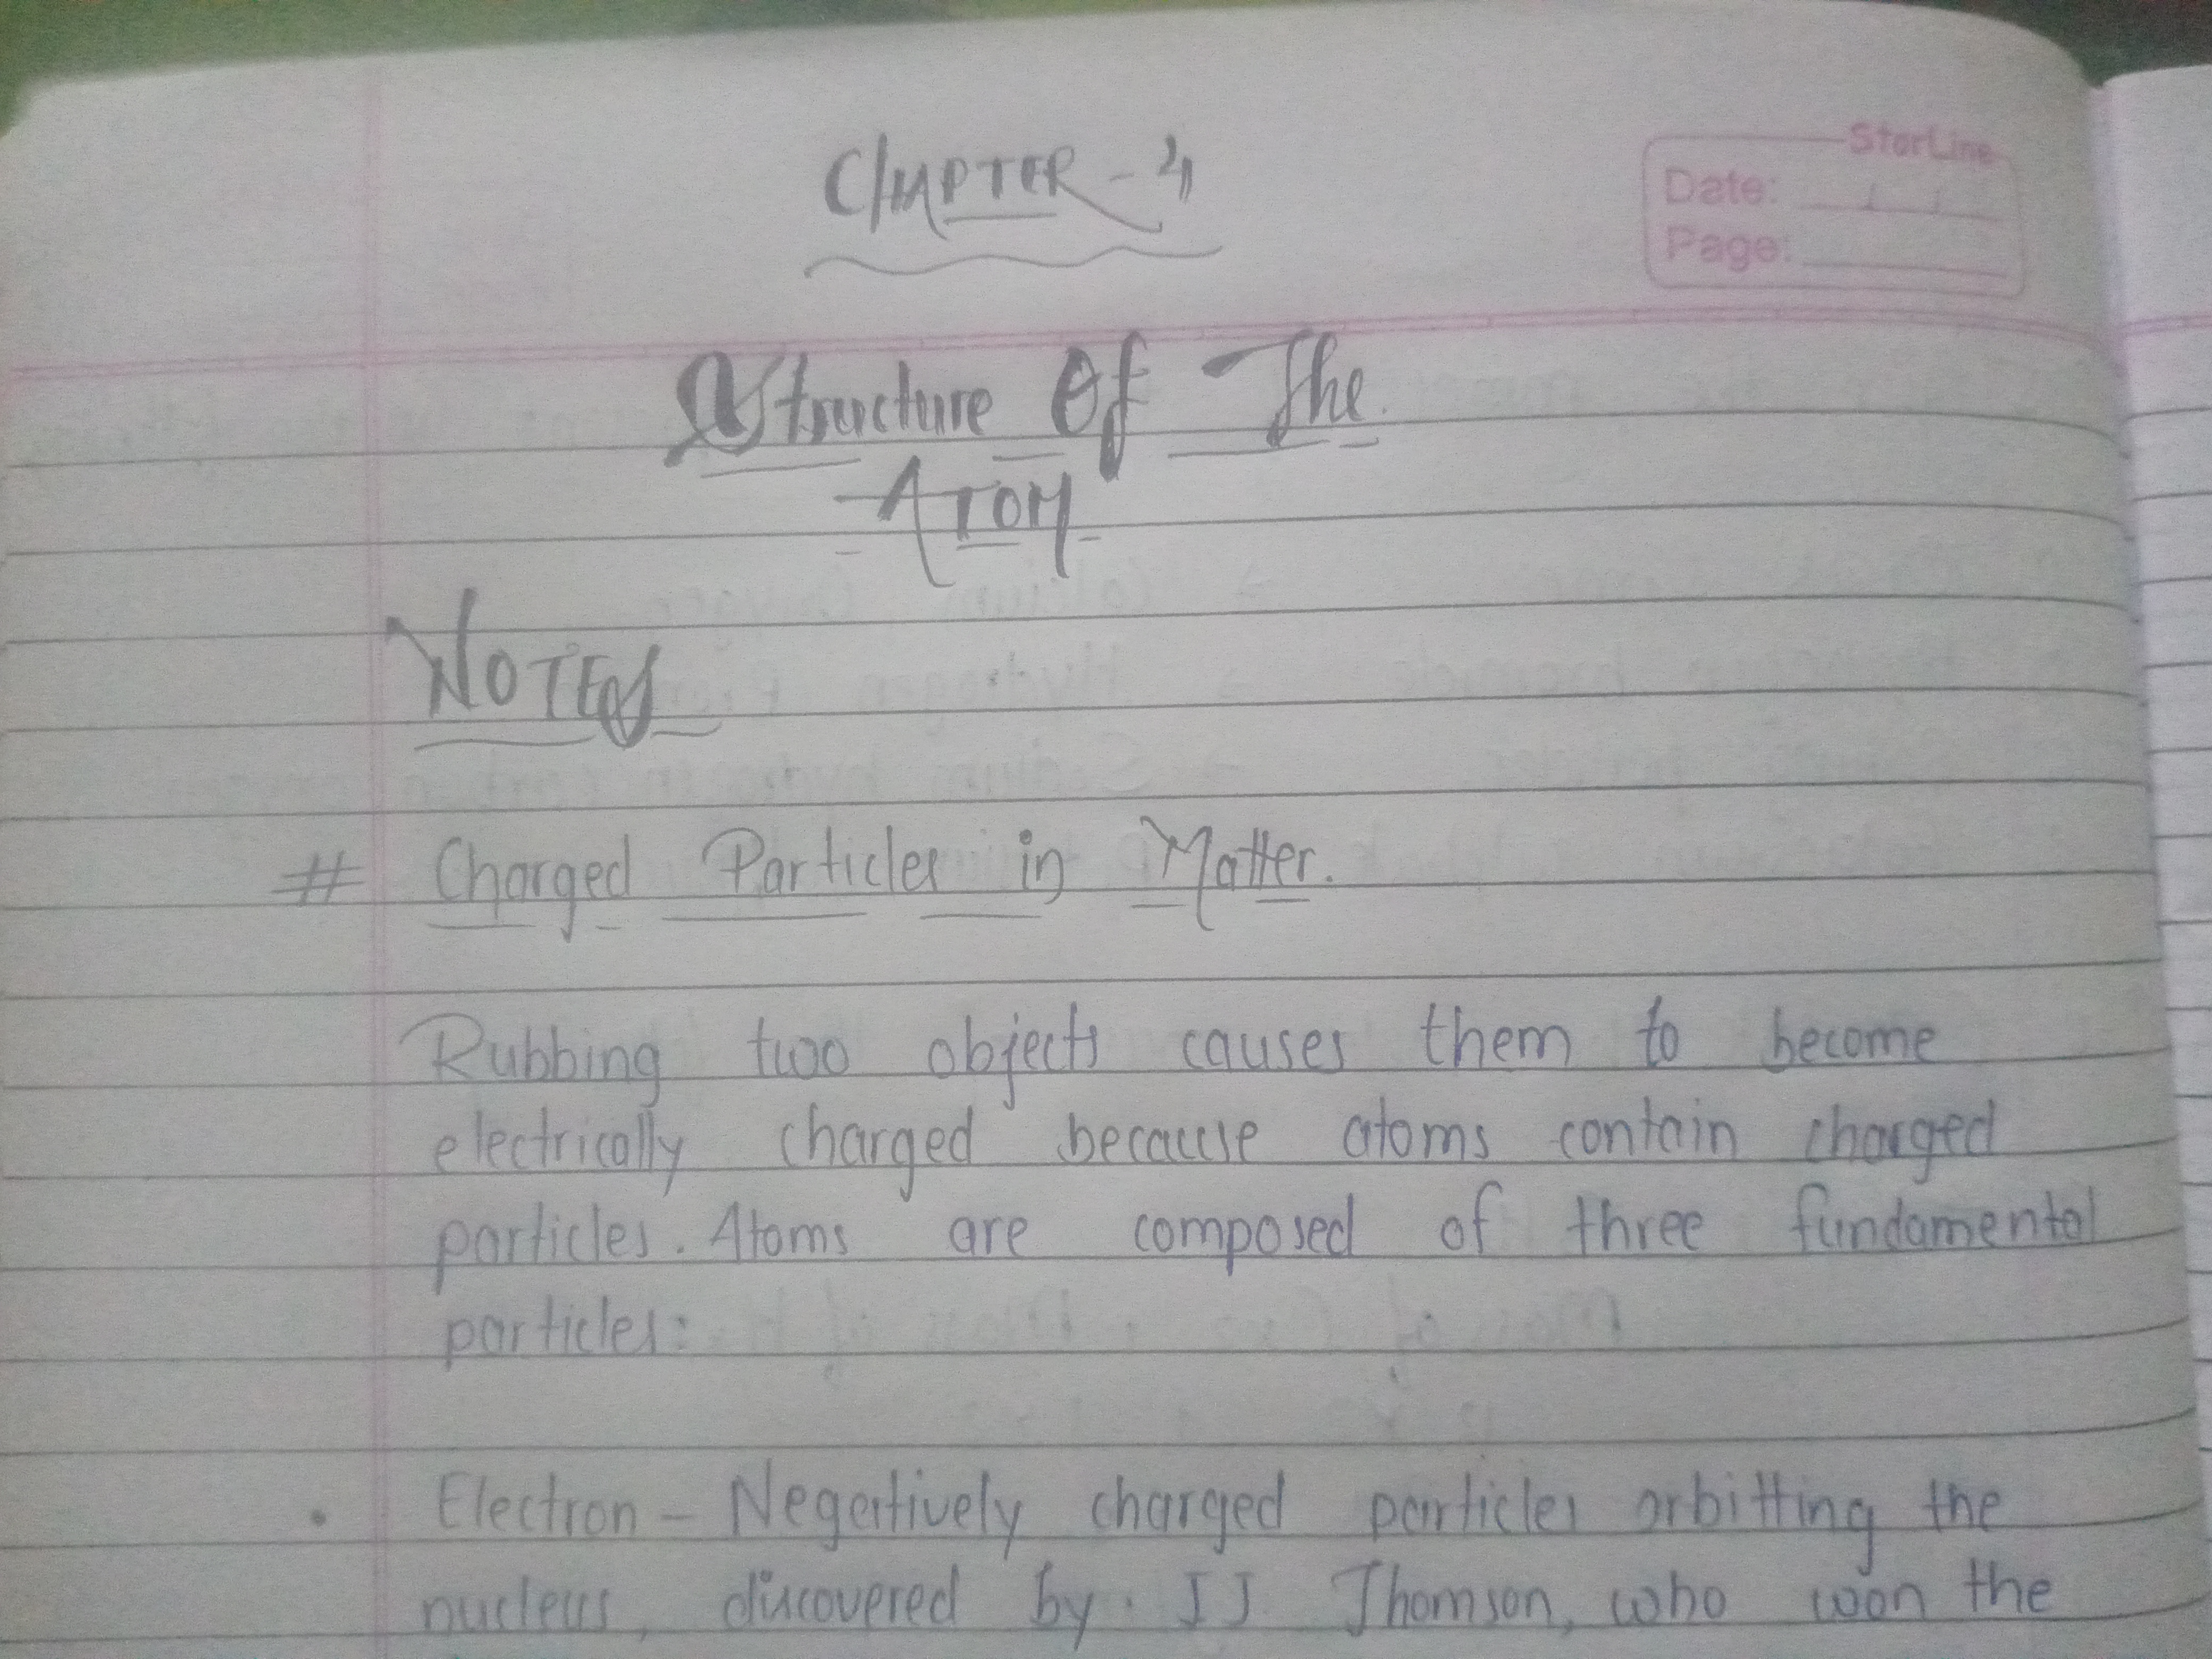 CHAPTER - 4
StarLine
Date:
Page:
Structure Of The
ATOM
NOTES
# Charged Particles in Matter.
Rubbing two objects causes them to become
electrically charged because atoms contain charged
particles. Atoms are composed of three fundamental
particles:
• Electron - Negatively charged particles orbitting the
nucleus, discovered by J J Thomson, who won the